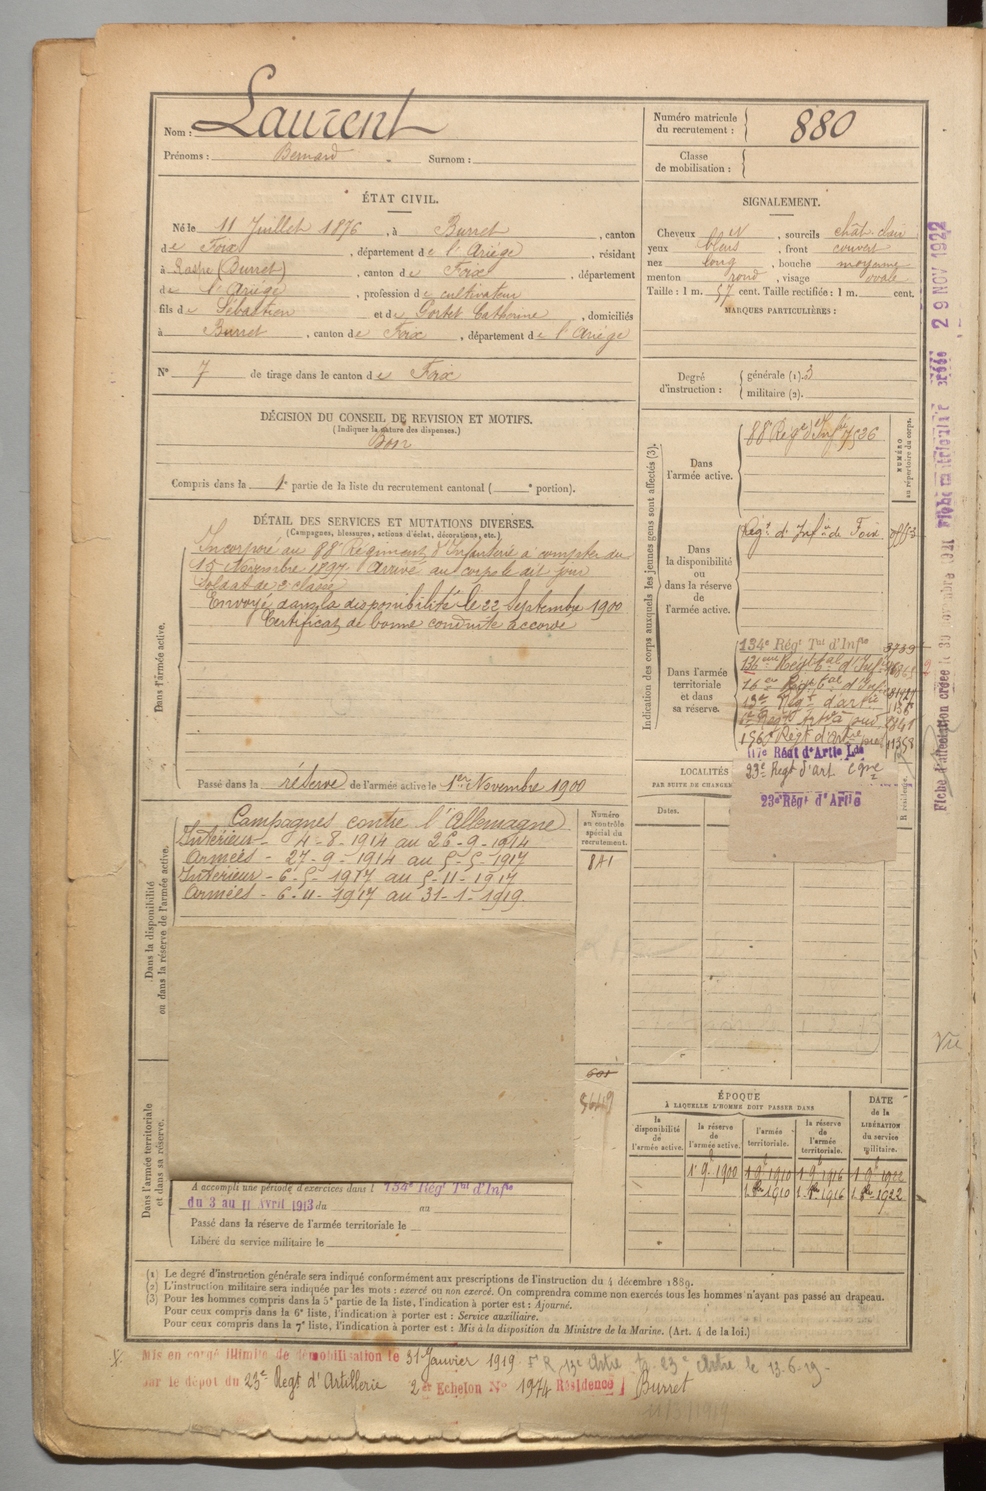 Nom : Laurent
Prénoms : Bernard Surnom :
Numéro matricule du recrutement : 880
Classe de mobilisation :
ÉTAT CIVIL.
Né le 11 Juillet 1876, à Burret, canton
de Foix, département de l'Ariège, résidant
à (Burret), canton de Foix, département
de l'Ariège, profession de cultivateur
fils de Sébastien et de Catherine, domiciliés
à Burret, canton de Foix, département de l'Ariège
SIGNALEMENT.
Cheveux, sourcils chât. clair
yeux bleus, front couvert
nez long, bouche moyenne
menton rond, visage ovale
Taille : 1 m. 57 cent. Taille rectifiée : 1 m. cent.
MARQUES PARTICULIÈRES :
N° 7 de tirage dans le canton de Foix
Degré d'instruction : générale (1). 3
militaire (2).
DÉCISION DU CONSEIL DE REVISION ET MOTIFS.
(Indiquer la nature des dispenses.)
Bon
Compris dans la 1e partie de la liste du recrutement cantonal ( e portion).
DÉTAIL DES SERVICES ET MUTATIONS DIVERSES.
(Campagnes, blessures, actions d'éclat, décorations, etc.)
Dans l'armée active.
Incorporé au 88e Régiment d'Infanterie à compter du
15 Novembre 1897. Arrivé au corps le dit jour
Soldat de 2e classe
Envoyé dans la disponibilité le 22 Septembre 1900
Certificat de bonne conduite accordé
Passé dans la réserve de l'armée active le 1er Novembre 1900
Indication des corps auxquels les jeunes gens sont affectés (3).
NUMÉRO au répertoire du corps.
Dans l'armée active.
88e Régt d'Infie 7536
Dans la disponibilité ou dans la réserve de l'armée active.
Régt d'Infie de Foix
Dans l'armée territoriale et dans sa réserve.
134e Régt Tal d'Infie 3739
136eme Régt tal d'Infie
Régt tal d'Infie
13e Régt d'artie
156e Régt d'Artie 11358
117e Régt d'Artie Lde
23e Régt d'art. Cgne
23e Régt d'Artie
LOCALITÉS
PAR SUITE DE CHANGEM
Dates.
R résidence.
Dans la disponibilité ou dans la réserve de l'armée active.
Campagnes contre l'Allemagne
Intérieur - 4-8-1914 au 26-9-1914
Armées - 27-9-1914 au 5-5-1917
Intérieur - 6-5-1917 au 5-11-1917
Armées - 6-11-1917 au 31-1-1919.
Numéro au contrôle spécial du recrutement.
841
601
Dans l'armée territoriale et dans sa réserve.
A accompli une période d'exercices dans l 134e Régt Tal d'Infie
du 3 au 11 Avril 1913 du au
Passé dans la réserve de l'armée territoriale le
Libéré du service militaire le
ÉPOQUE
À LAQUELLE L'HOMME DOIT PASSER DANS
la disponibilité de l'armée active.
la réserve de l'armée active.
l'armée territoriale.
la réserve de l'armée territoriale.
DATE de la LIBÉRATION du service militaire.
1r 9. 1900 1 9 1910 1 9 1916 1 9 1922
1 8bre 1910 1 8bre 1916 1 8bre 1922
(1) Le degré d'instruction générale sera indiqué conformément aux prescriptions de l'instruction du 4 décembre 1889.
(2) L'instruction militaire sera indiquée par les mots : exercé ou non exercé. On comprendra comme non exercés tous les hommes n'ayant pas passé au drapeau.
(3) Pour les hommes compris dans la 5e partie de la liste, l'indication à porter est : Ajourné.
Pour ceux compris dans la 6e liste, l'indication à porter est : Service auxiliaire.
Pour ceux compris dans la 7e liste, l'indication à porter est : Mis à la disposition du Ministre de la Marine. (Art. 4 de la loi.)
Mis en congé illimité de démobilisation le 31 Janvier 1919
13e Artie 23e Artie le 13-6-19-
par le dépot du 23e Régt d'Artillerie 2er Echelon N° 1974 Résidence Burret
11/3/1919
Vu
29 NOV 1922